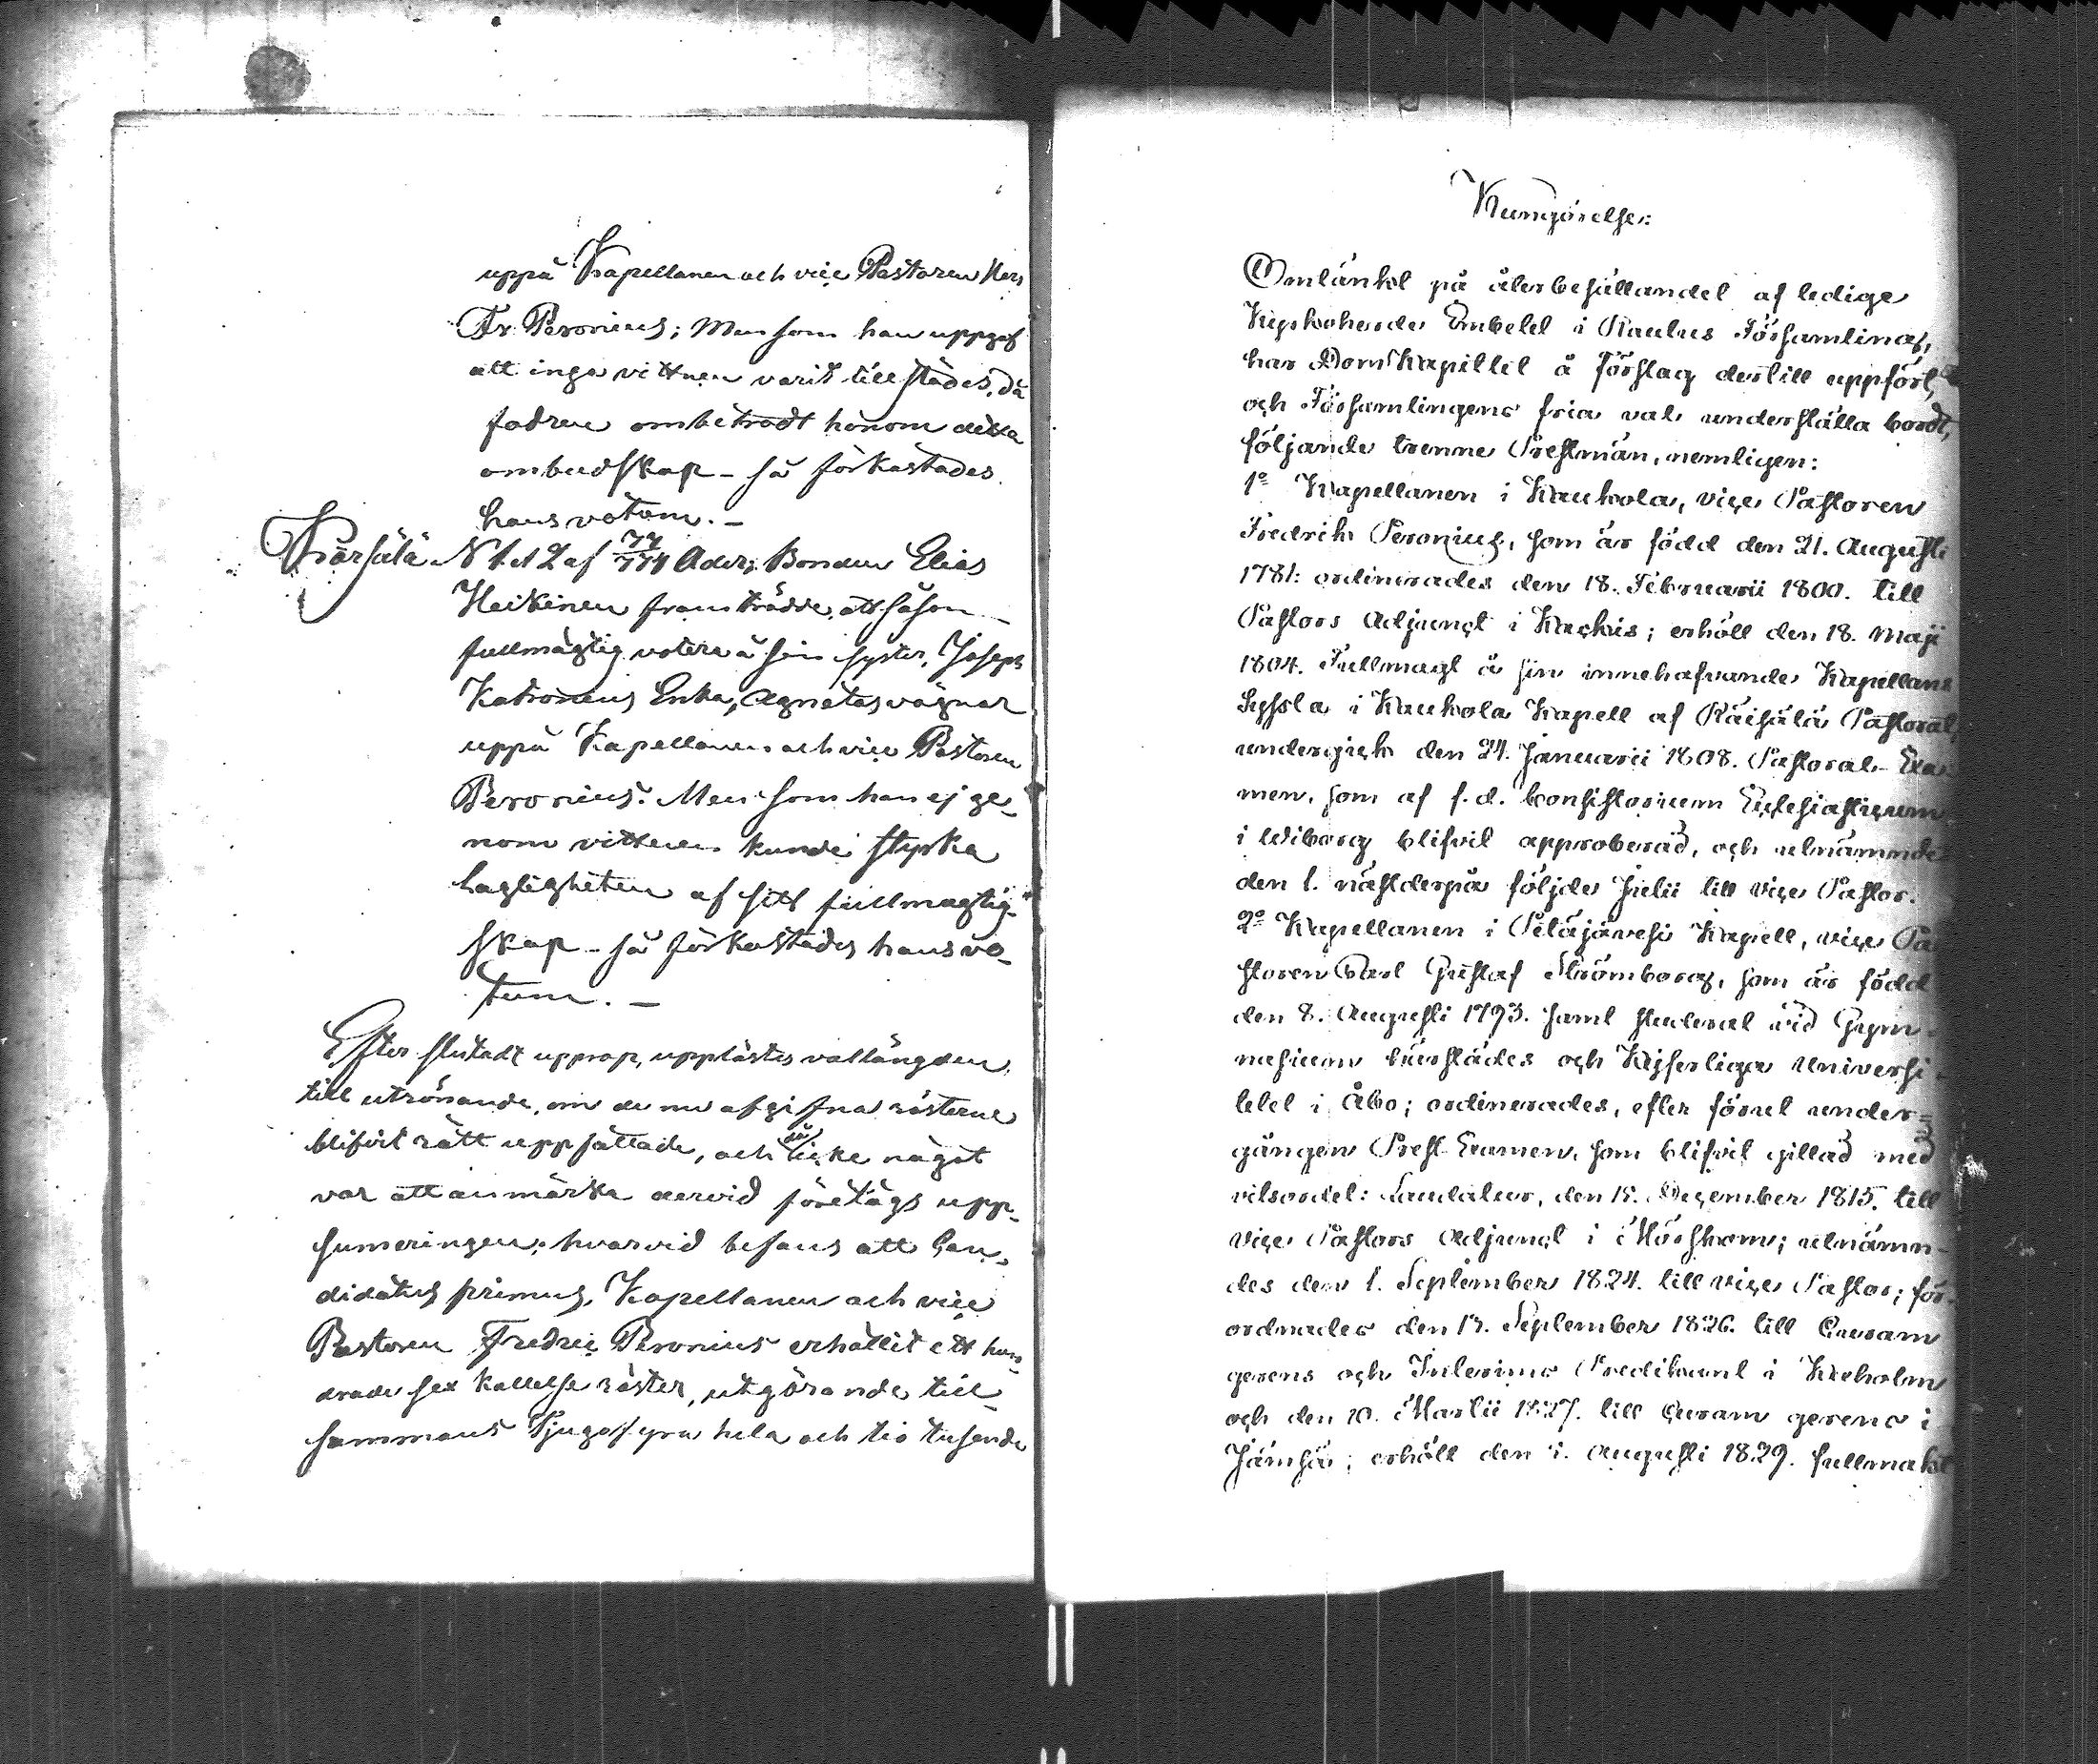 uppå Kapellanen och vice Pastoren Herr
Fr. Peronius; Men som han uppgaf
att inga vittnen varit tillstädes, då
fadren ombetrodt honom detta
ombudskap - så förkastades
hans votum. -
Kärsälä N 1 et 2 af 77/774 Ader; Bonden Elias
Heikinen framträdde, att såsom
fullmägtig votera å sin syster, Joseph
Katronens Enka, Agnetas vägnar
uppå Kapellanen och vice Pastoren
Peronius. Men som han ej ge-
nom vittnen kunde styrka
lagligheten af sitt fullmagtig-
skap - så förkastades hans vo-
tum. -
Efter slutadt upprop, upplästes vallängden
till utrönande, om de nu afgifna rösterne
blifvit rätt uppfattade, och då icke något
var att anmärka dervid företogs upp-
sumeringen; hvarvid befans att Can-
didatus primus, Kapellanen och vice
Pastoren Fredric Peronius erhållit ett hun-
drade sex kallelse röster, utgörande till-
sammans Tjugofyra hela och tio tusende
Kungörelse:
Omtänkt på återbesättandet af lediga
Kyrkoherde Embetet i Kaukus Församling,
har DomKapitlet å förslag dertill uppfört,
och Församlingens fria val underställa bordt,
följande trenne Prestmän, nemligen:
1o Kapellanen i Kaukola, vice Pastoren
Fredrik Peronius, som är född den 21. Augusti
1781: ordinerades den 18. Februarii 1800. till
Pastors Adjunct i Kackis; erhöll den 18. Maji
1804. Fullmagt å sin innehafvande Kapellans
Syssla i Kaukola Kapell af Räisälä Pastorat,
undergick den 24. Januarii 1808. Pastoral-Exa-
men, som af f.d. Consistorium Ecclesiasticum
i Wiborg blifvit approberad, och utnämndes
den 1. nästderpå följde Julii till vice Pastor.
2o Kapellanen i Peläjärvesi Kapell, vice Pa-
storen Carl Gustaf Strömborg, som är född
den 8. Augusti 1793. samt studerat vid Gym-
nasium härstädes och Kejserliga Universi-
tetet i Åbo; ordinerades, efter förut under-
gången Prest-Examen, som blifvit gillad med
vitsordet: Laudatur, den 15. December 1815. till
vice Pastors Adjunct i Mörskom; utnämn-
des den 1. September 1824. till vice Pastor; för-
ordnades den 13. September 1826. till Curam
gerens och Interims Predikant i Kexholm
och den 10. Martii 1827. till Curam gerens i
Jämsä; erhöll den 1. Augusti 1829. fullmakt